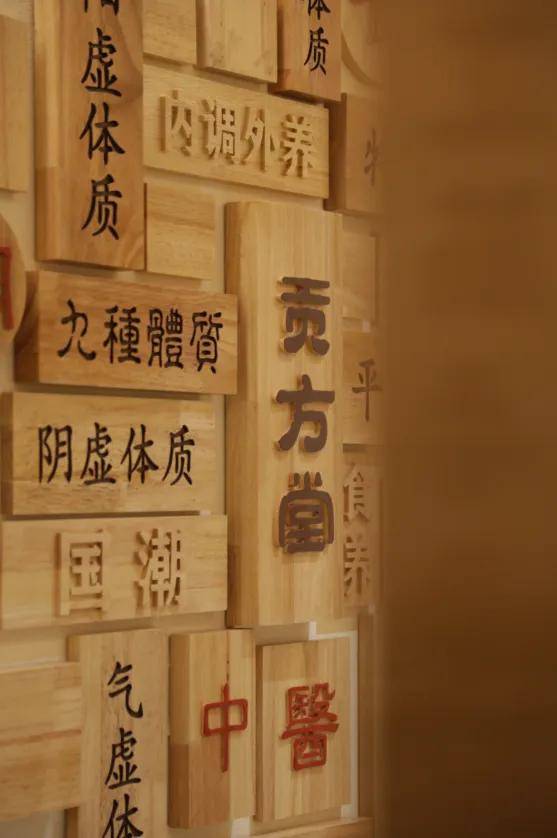 虚体质
体质
内调外养
九種體質
贡方堂
阴虚体质
平
国潮
食养
气虚体
中醫